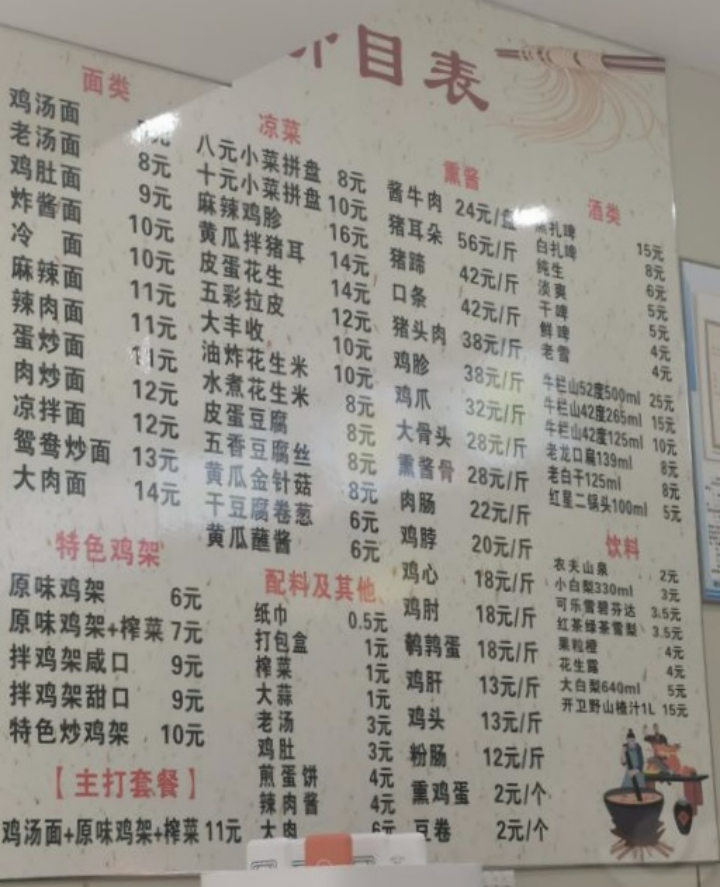 目表
面类
鸡汤面
老汤面 8元
鸡肚面 9元
炸酱面 10元
冷 面 10元
麻辣面 11元
辣肉面 11元
蛋炒面 11元
肉炒面 12元
凉拌面 12元
鸳鸯炒面 13元
大肉面 14元
特色鸡架
原味鸡架 6元
原味鸡架+榨菜 7元
拌鸡架咸口 9元
拌鸡架甜口 9元
特色炒鸡架 10元
【主打套餐】
鸡汤面+原味鸡架+榨菜 11元
凉菜
八元小菜拼盘 8元
十元小菜拼盘 10元
麻辣鸡胗 16元
黄瓜拌猪耳 14元
皮蛋花生 14元
五彩拉皮 12元
大丰收 10元
油炸花生米 10元
水煮花生米 8元
皮蛋豆腐 8元
五香豆腐丝 8元
黄瓜金针菇 8元
干豆腐卷葱 6元
黄瓜蘸酱 6元
配料及其他
纸巾 0.5元
打包盒 1元
榨菜 1元
大蒜 1元
老汤 3元
鸡肚 3元
煎蛋饼 4元
辣肉酱 4元
大肉 6元
熏酱
酱牛肉 24元/
猪耳朵 56元/斤
猪蹄 42元/斤
口条 42元/斤
猪头肉 38元/斤
鸡胗 38元/斤
鸡爪 32元/斤
大骨头 28元/斤
熏酱骨 28元/斤
肉肠 22元/斤
鸡脖 20元/斤
鸡心 18元/斤
鸡肘 18元/斤
鹌鹑蛋 18元/斤
鸡肝 13元/斤
鸡头 13元/斤
粉肠 12元/斤
熏鸡蛋 2元/个
豆卷 2元/个
酒类
黑扎啤 15元
白扎啤 8元
纯生 6元
淡爽 5元
干啤 5元
鲜啤 4元
老雪 4元
牛栏山52度500ml 25元
牛栏山42度265ml 15元
牛栏山42度125ml 10元
老龙口扁139ml 8元
老白干125ml 8元
红星二锅头100ml 5元
饮料
农夫山泉 2元
小白梨330ml 3元
可乐雪碧芬达 3.5元
红茶绿茶雪梨 3.5元
果粒橙 4元
花生露 4元
大白梨640ml 5元
开卫野山楂汁1L 15元